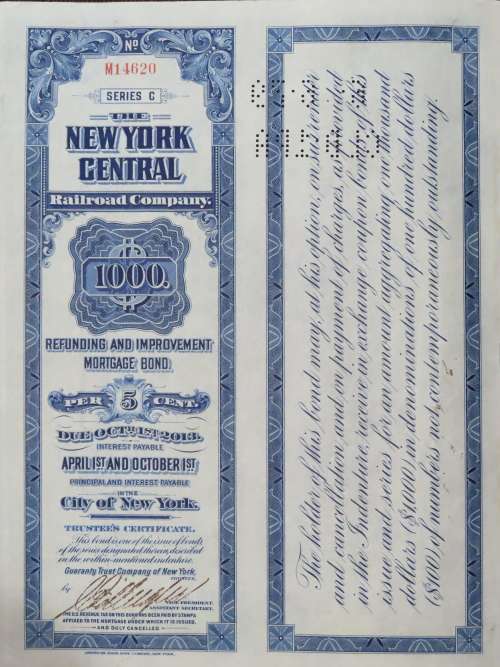 No
M14620
SERIES C
THE
NEW YORK
CENTRAL
Railroad Company.
1000.
REFUNDING AND IMPROVEMENT
MORTGAGE BOND
PER 5 CENT.
DUE OCTR. 1ST 2013.
INTEREST PAYABLE
APRIL 1ST AND OCTOBER 1ST
PRINCIPAL AND INTEREST PAYABLE
IN THE
City of New York.
TRUSTEE'S CERTIFICATE.
This bond is one of the issue of bonds
of the series designated therein, described
in the within-mentioned indenture.
Guaranty Trust Company of New York,
TRUSTEE,
by
VICE PRESIDENT.
ASSISTANT SECRETARY.
THE U.S. REVENUE TAX ON THIS BOND HAS BEEN PAID BY STAMPS
AFFIXED TO THE MORTGAGE UNDER WHICH IT IS ISSUED,
AND DULY CANCELLED
AMERICAN BANK NOTE COMPANY, NEW YORK.
The holder of this bond may, at his option, on surrender
in cancellation and on payment of charges, as provided
in the Indenture receive in exchange coupon bonds of this
issue and series for an amount aggregating one thousand
dollars ($1000) in denominations of one hundred dollars
$100, of numbers not contemporaneously outstanding.